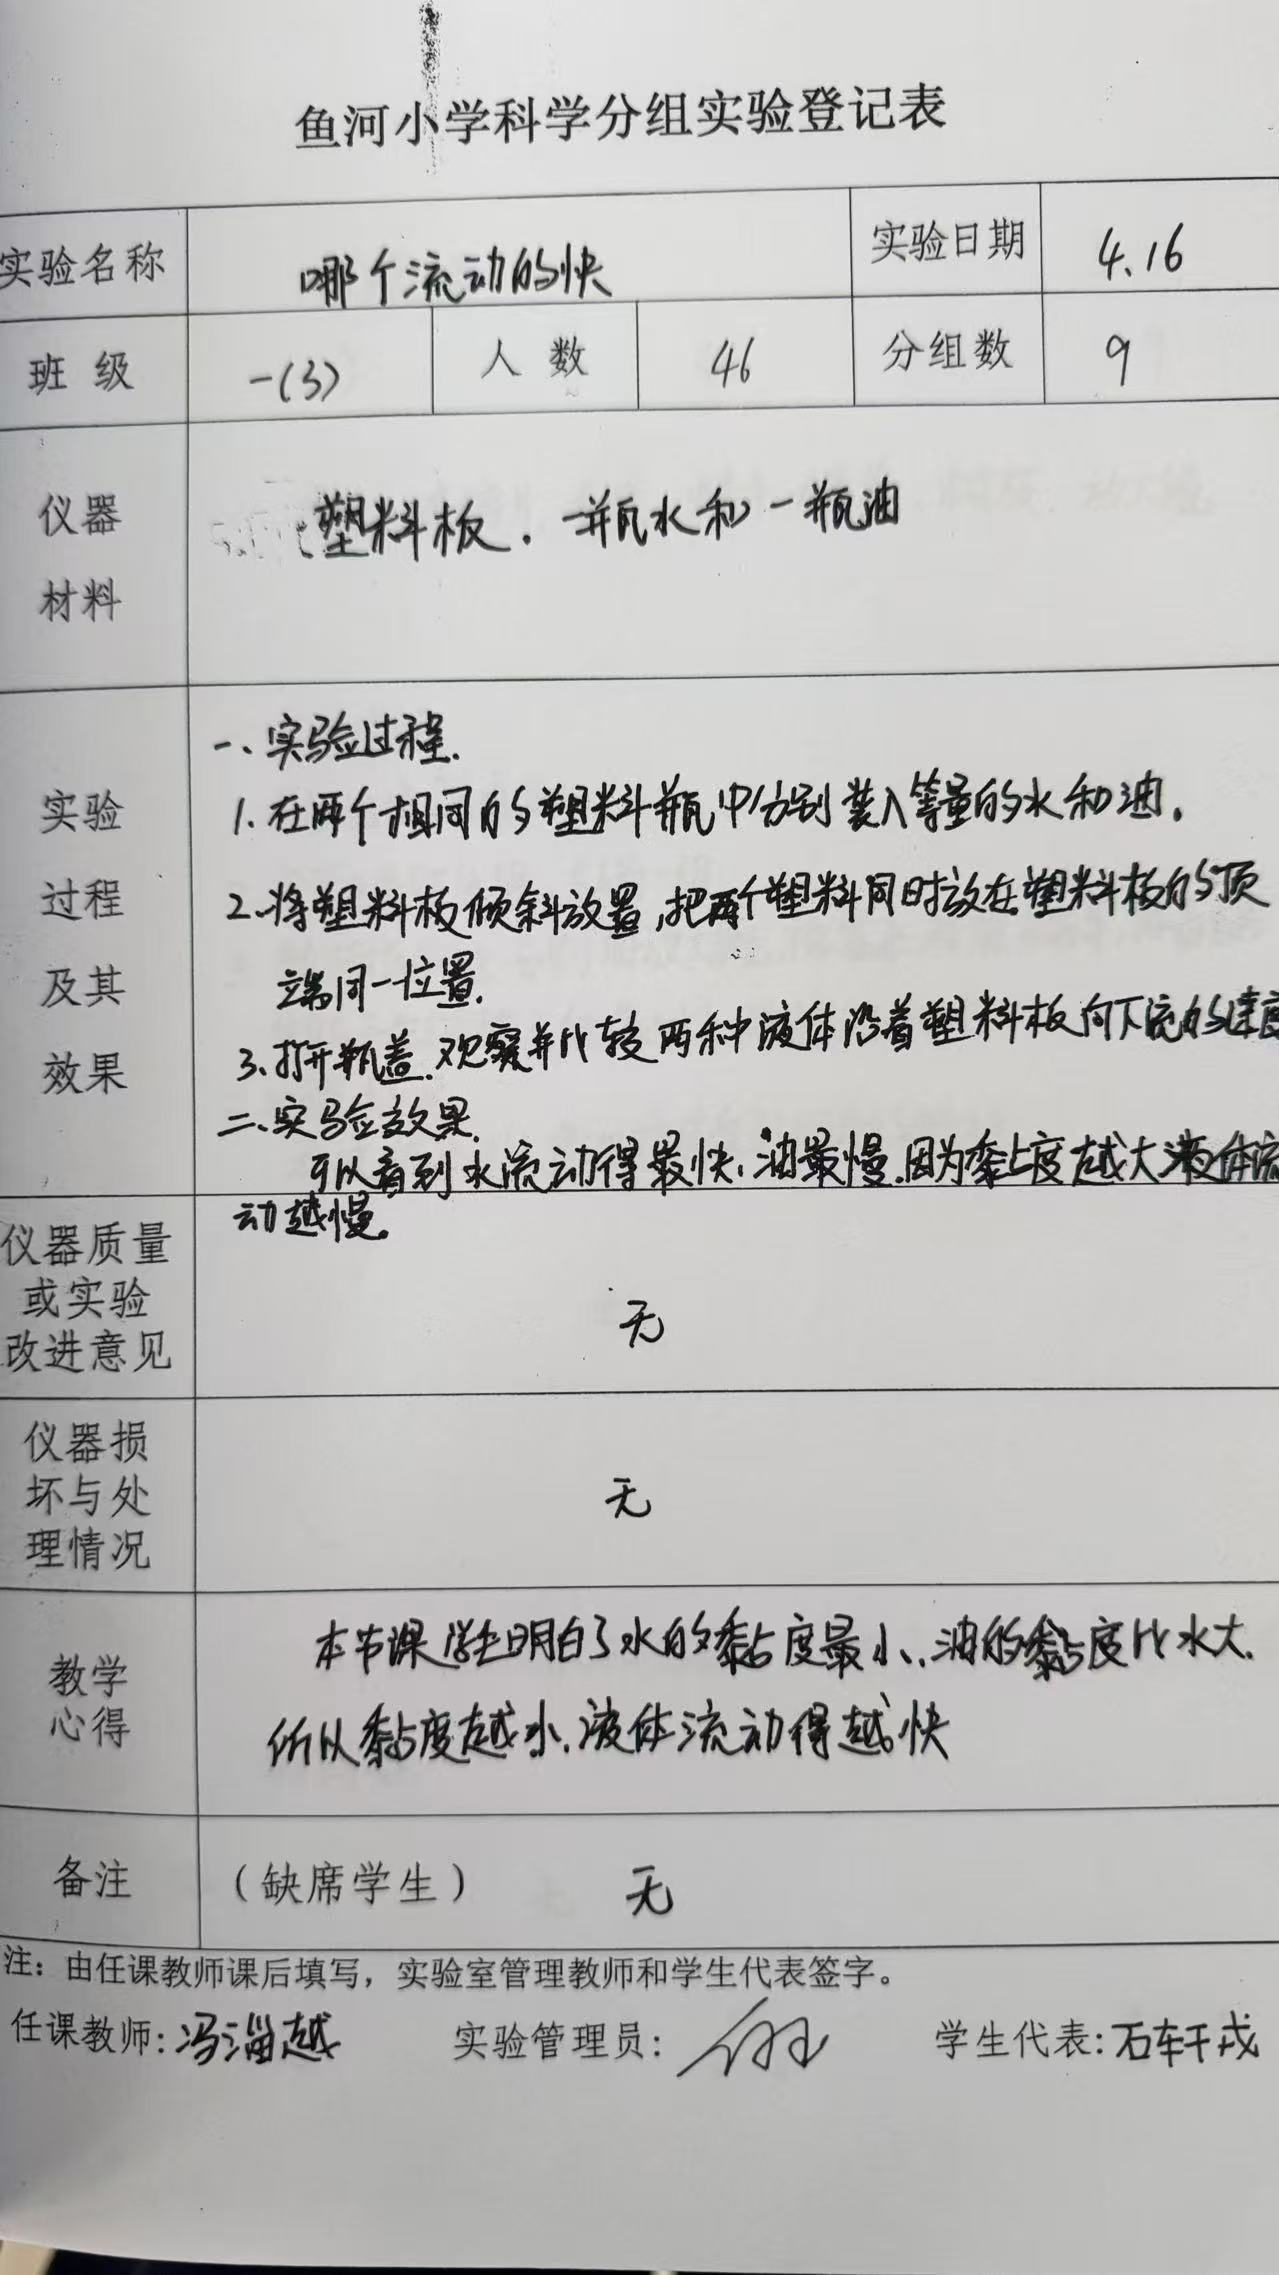 鱼河小学科学分组实验登记表
实验名称 哪个流动的快 实验日期 4.16
班 级 一(3) 人 数 46 分组数 9
仪器
材料
塑料板. 一瓶水和一瓶油
实验
过程
及其
效果
一、实验过程.
1. 在两个相同的塑料瓶中分别装入等量的水和油.
2. 将塑料板倾斜放置,把两个塑料同时放在塑料板的顶
端同一位置.
3. 打开瓶盖.观察并比较两种液体沿着塑料板向下流的速度
二、实验效果.
可以看到水流动得最快.油最慢.因为黏度越大液体流
动越慢。
仪器质量
或实验
改进意见
无
仪器损
坏与处
理情况
无
教学
心得
本节课学生明白了水的黏度最小.油的黏度比水大.
所以黏度越小.液体流动得越快
备注 (缺席学生) 无
注：由任课教师课后填写，实验室管理教师和学生代表签字。
任课教师:冯淄越 实验管理员: 学生代表:石轩戎